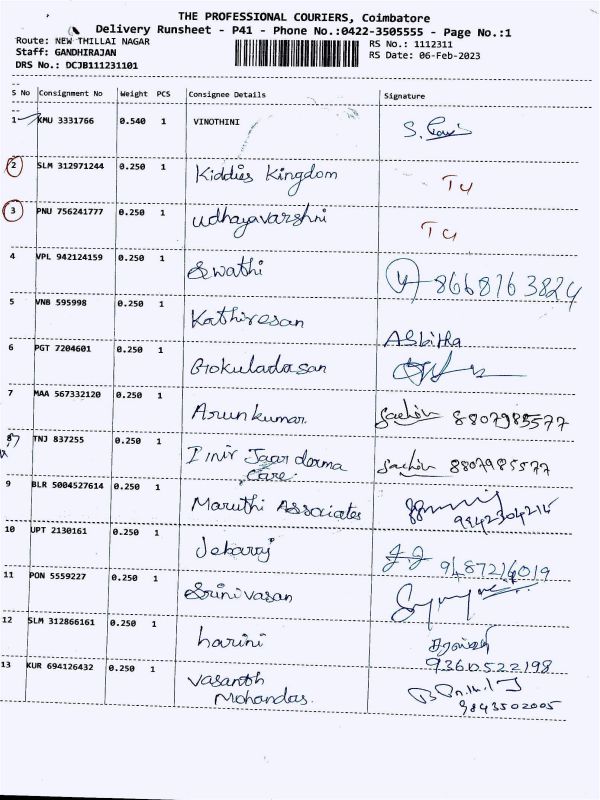 THE PROFESSIONAL COURIERS, Coimbatore
Delivery Runsheet - P41 - Phone No.:0422-3505555 - Page No.:1
Route: NEW THILLAI NAGAR
RS No.: 1112311
Staff: GANDHIRAJAN
RS Date: 06-Feb-2023
DRS No.: DCJB111231101
S No Consignment No Weight PCS Consignee Details Signature
1 KMU 3331766 0.540 1 VINOTHINI
2 SLM 312971244 0.250 1 Kiddies Kingdom
3 PNU 756241777 0.250 1 Udhayavarshni
4 VPL 942124159 0.250 1 Swathi 8668763824
5 VNB 595998 0.250 1 Kathiresan
6 PGT 7204601 0.250 1 Gokuladasan
7 MAA 567332120 0.250 1 Arunkumar Sachin 8807985577
8 TNJ 837255 0.250 1 Care Sachin 8807985577
9 BLR 5004527614 0.250 1 Maruthi Associates 9942304215
10 UPT 2130161 0.250 1 Jebarraj J.J
11 PON 5559227 0.250 1 Srinivasan
12 SLM 312866161 0.250 1 harini
9360522198
13 KUR 694126432 0.250 1 Vasanth
Mohandas. 9843502005